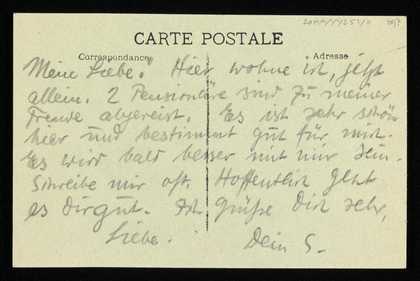 CARTE POSTALE
Correspondance
Adresse
Meine Liebe. Hier wohne ich, jetzt
allein. 2 Pensionäre sind zu meiner
Freude abgereist. Es ist sehr schön
hier und bestimmt gut für mich.
Es wird bald besser mit mir sein.
Schreibe mir oft. Hoffentlich geht
es Dir gut. Ich grüße Dich sehr,
Liebe. Dein S.